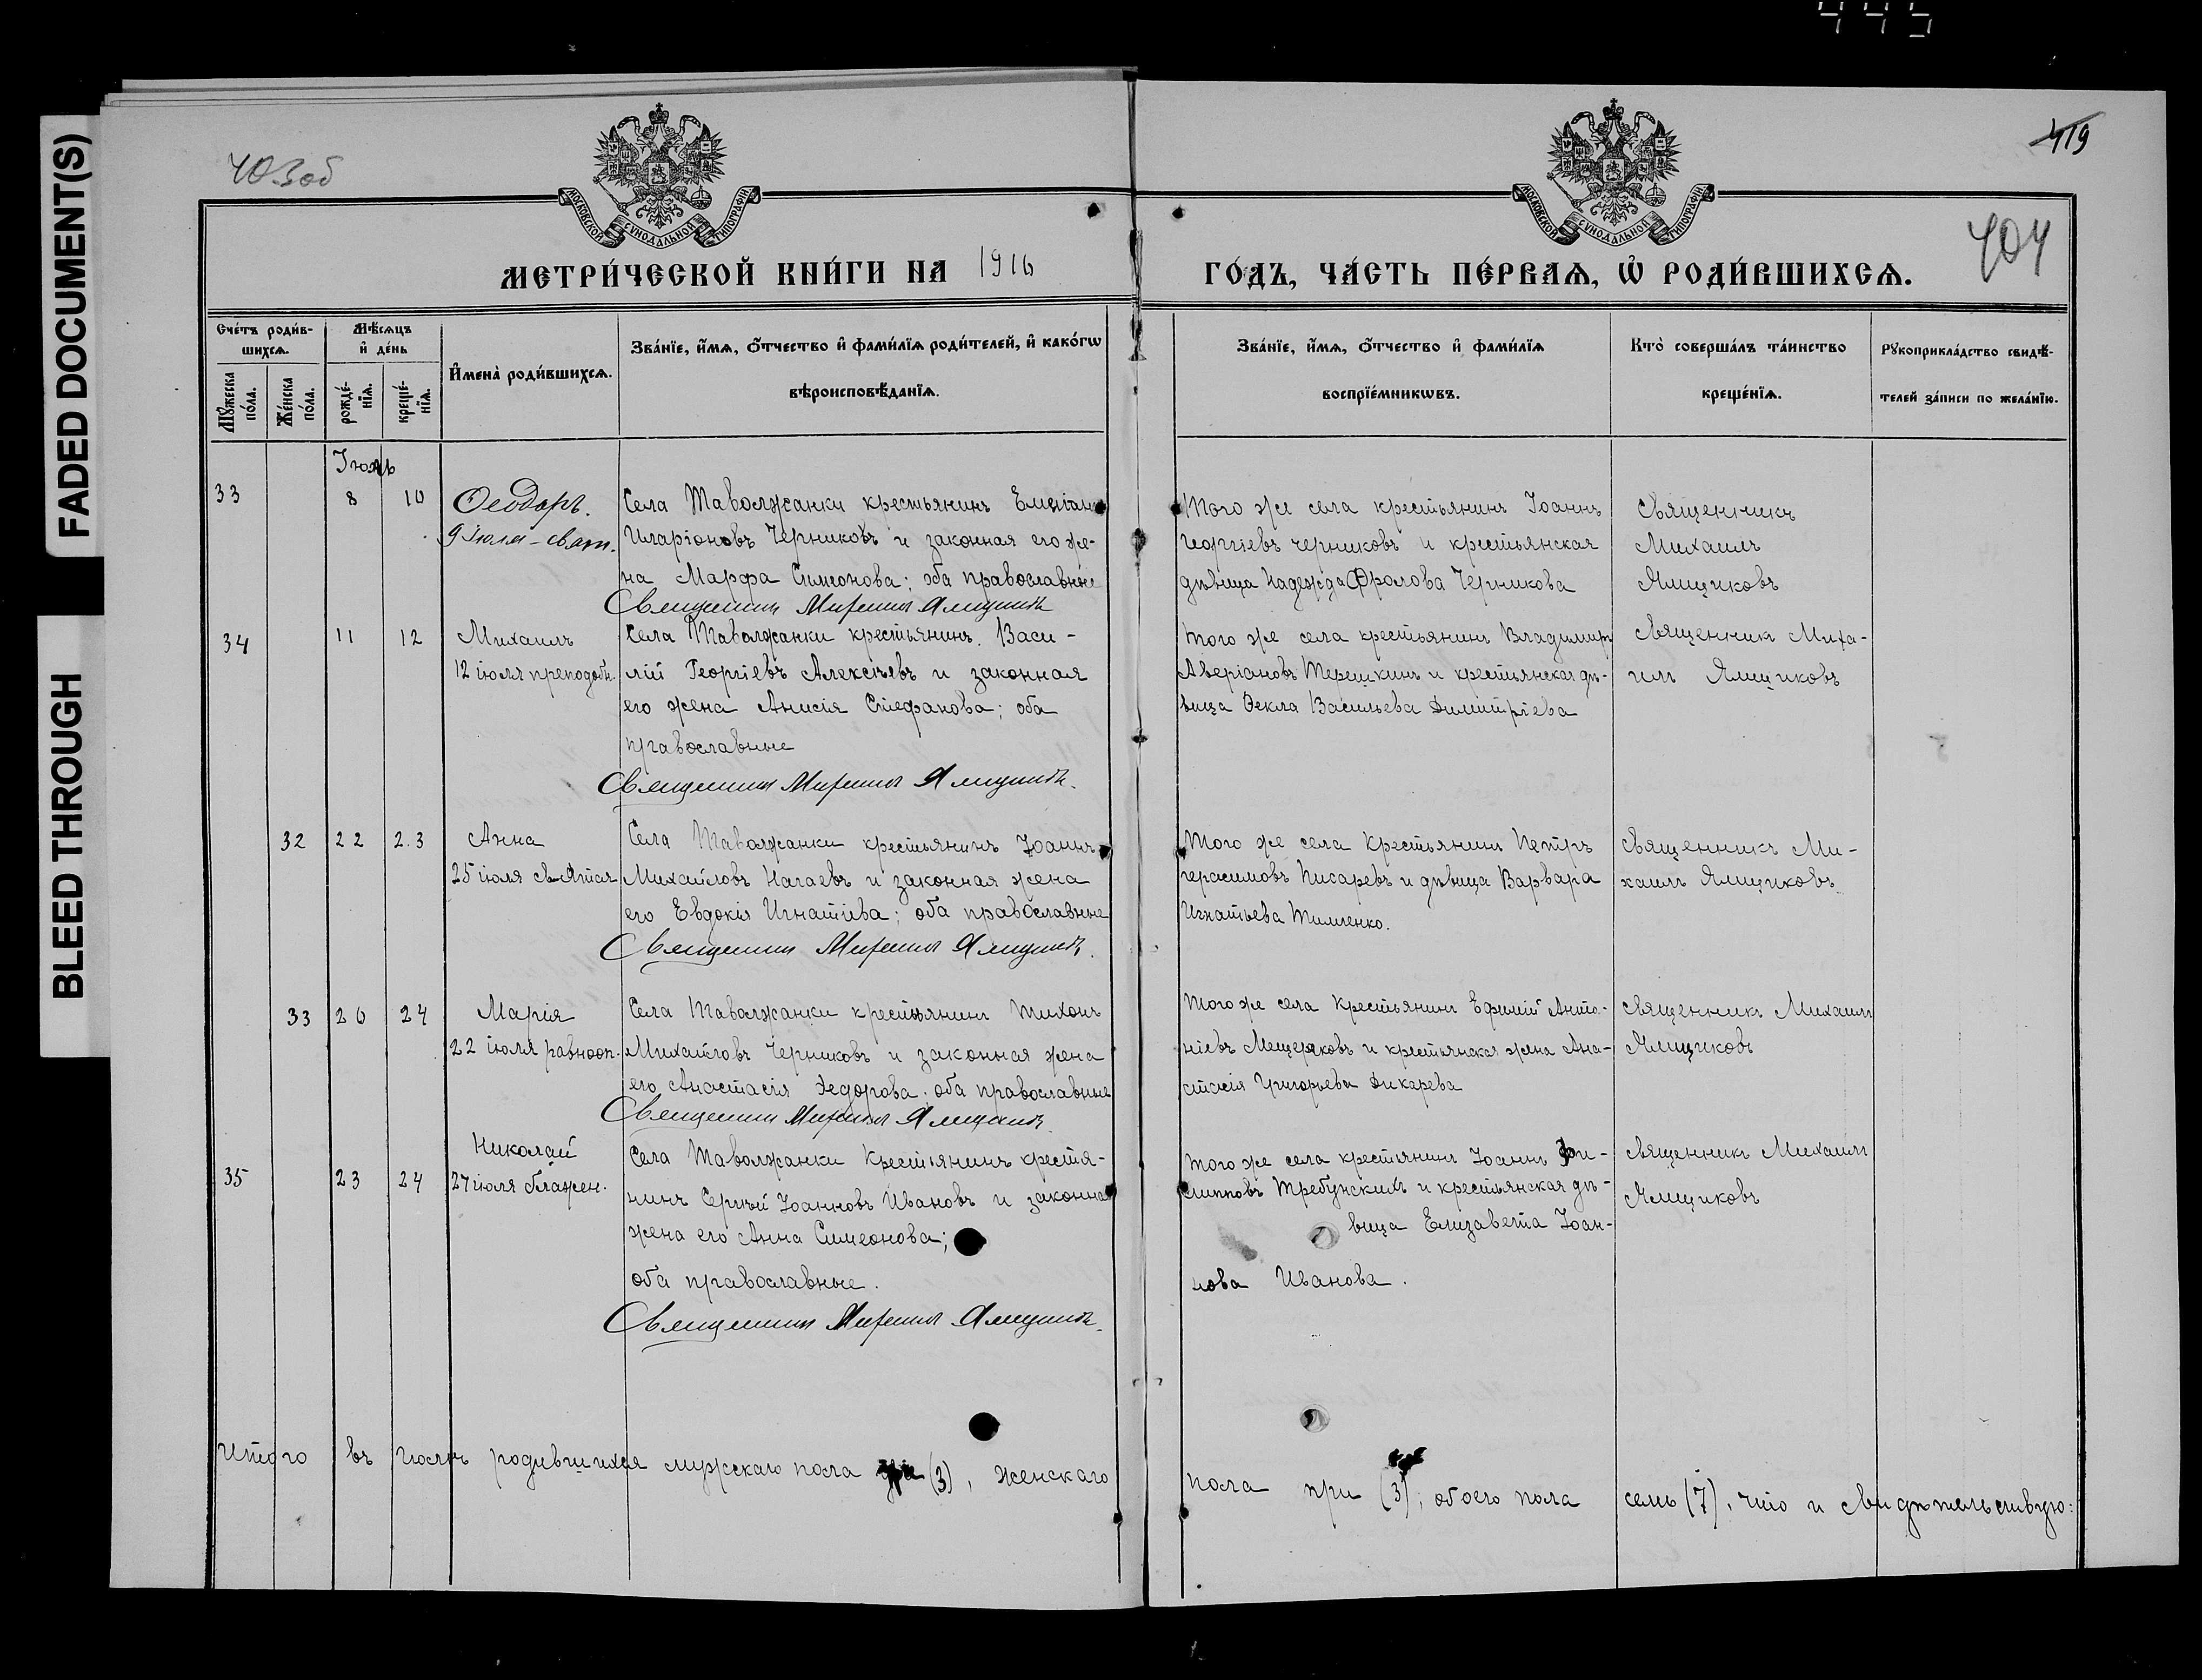 445
FADED DOCUMENT(S)
BLEED THROUGH
403 об
419
404
МОСКОВСКОЙ СѴНОДАЛЬНОЙ ТИПОГРАФІИ
МОСКОВСКОЙ СѴНОДАЛЬНОЙ ТИПОГРАФІИ
МЕТРИ́ЧЕСКОЙ КНИ́ГИ НА 1916 ГО́ДЪ, ЧА́СТЬ ПЕ́РВАѦ, Ѡ҆ РОДИ́ВШИХСѦ.
Сче́тъ роди́в-
шихсѧ.
Мꙋ́жеска по́ла.
Же́нска по́ла.
Мѣ́сѧцъ
и҆ де́нь
рожде́-
нїѧ.
креще́-
нїѧ.
И҆мена̀ роди́вшихсѧ.
Зва́нїе, и҆́мѧ, ѻ҆́тчество и҆ фами́лїѧ роди́телей, и҆ како́гѡ
вѣроисповѣ́данїѧ.
Зва́нїе, и҆́мѧ, ѻ҆́тчество и҆ фами́лїѧ
воспрїе́мникѡвъ.
Кто̀ соверша́лъ та́инство
креще́нїѧ.
Рꙋкоприкла́дство свидѣ́-
телей за́писи по жела́нїю.
Іюль
33 8 10 Ѳеодоръ.
9 іюля – свят.
Села Таволжанки крестьянинъ Емиліанъ
Иларіоновъ Черниковъ и законная его же-
на Марфа Симеонова; оба православные
Священникъ Михаилъ Ямщиковъ
Того же села крестьянинъ Іоаннъ
Георгіевъ Черниковъ и крестьянская
дѣвица Надежда Фролова Черникова
Священникъ
Михаилъ
Ямщиковъ
34 11 12 Михаилъ
12 іюля преподобн.
Села Таволжанки крестьянинъ Васи-
лій Георгіевъ Алексѣевъ и законная
его жена Анисія Стефанова; оба
православные
Священникъ Михаилъ Ямщиковъ.
Того же села крестьянинъ Владимиръ
Аверіановъ Терешкинъ и крестьянская дѣ-
вица Ѳекла Васильева Димитріева
Священникъ Миха-
илъ Ямщиковъ
32 22 23 Анна
25 іюля святыя
Села Таволжанки крестьянинъ Іоаннъ
Михайловъ Нагаевъ и законная жена
его Евдокія Игнатіева; оба православные
Священникъ Михаилъ Ямщиковъ.
Того же села крестьянинъ Петръ
Герасимовъ Писаревъ и дѣвица Варвара
Игнатьева Тимченко.
Священникъ Ми-
хаилъ Ямщиковъ
33 20 24 Марія
22 іюля равноап.
Села Таволжанки крестьянинъ Тихонъ
Михайловъ Черниковъ и законная жена
его Анастасія Федорова; оба православные
Священникъ Михаилъ Ямщиковъ.
Того же села крестьянинъ Ефимій Анто-
ніевъ Мещеряковъ и крестьянская жена Ана-
стасія Григорьева Дикарева
Священникъ Михаилъ
Ямщиковъ
35 23 24 Николай
27 іюля блажен.
Села Таволжанки крестьянинъ крестя-
нинъ Сергѣй Іоанновъ Ивановъ и законная
жена его Анна Симеонова;
оба православные.
Священникъ Михаилъ Ямщиковъ.
Того же села крестьянинъ Іоаннъ Фи-
липповъ Требунскихъ и крестьянская дѣ-
вица Елизавета Іоан-
нова Иванова.
Священникъ Михаилъ
Ямщиковъ
Итого въ іюлѣ родившихся мужскаго пола (3), женскаго пола три (3), обоего пола семь (7), что и свидѣтельствую: